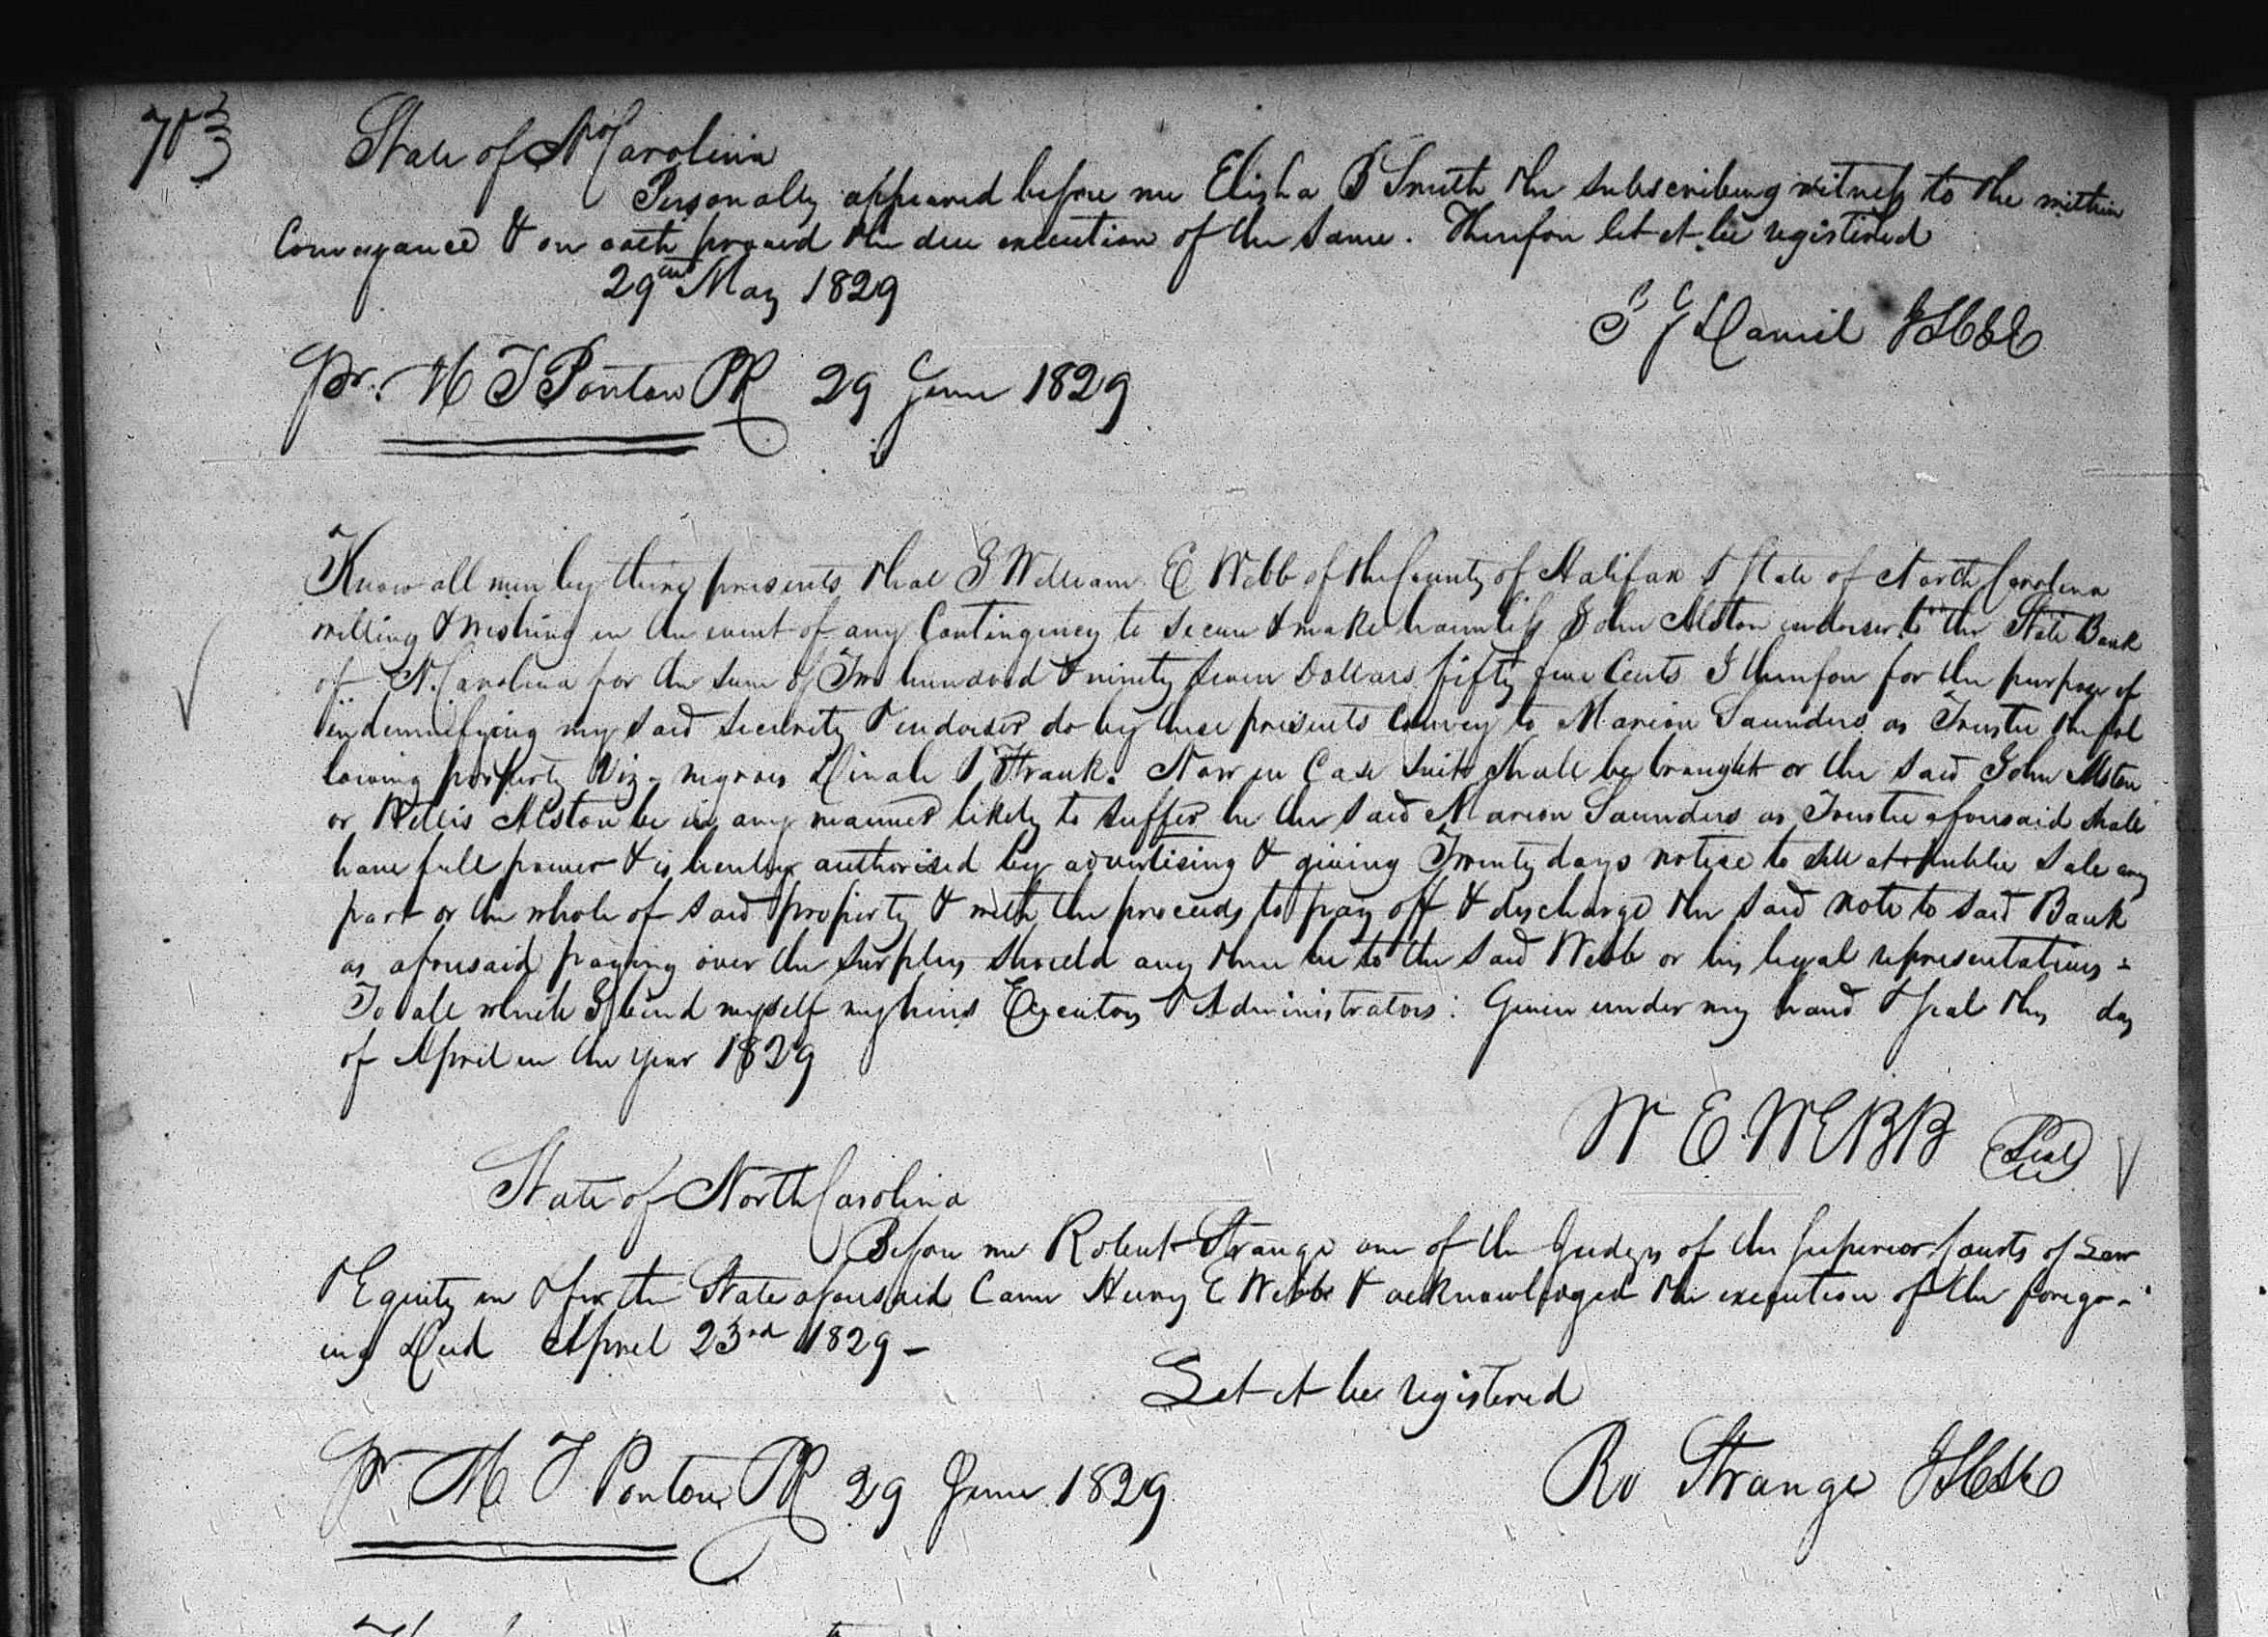 703
State of No Carolina
Personally appeared before me Elisha B Smith the subscribing witness to the within
Conveyance & on oath proved the due execution of the same. Therefore let it be registered
29th May 1829
J J Daniel JSCLE
Pr. M T Ponton PR 29 June 1829
Know all men by these presents that I William E Webb of the County of Halifax & State of North Carolina
willing & wishing in the event of any Contingency to secure & make harmless John Alston endorser to the State Bank
of N. Carolina for the sum of Two hundred & ninety seven Dollars fifty five Cents I therefore for the purpose of
indemnifying my said security & endorser do by these presents Convey to Marion Saunders as Trustee the fol
lowing property Viz - negroes Dinah & Frank. Now in Case suit shall be brought or the said John Alston
or Willis Alston be in any manner likely to suffer he the said Marion Saunders as Trustee aforesaid shall
have full power & is hereby authorised by advertising & giving Twenty days notice to sell at public sale any
part or the whole of said property & with the proceeds to pay off & discharge the said note to said Bank
as aforesaid paying over the surplus should any there be to the said Webb or his legal representatives -
To all which I bind myself my heirs Executors & Administrators: Given under my hand & seal this day
of April in the year 1829
W E. WEBB Seal
State of North Carolina
Before me Robert Strange one of the Judges of the Superior Courts of Law
& Equity in & for the State aforesaid Came Henry E Webb & acknowledged the execution of the forego-
ing Deed April 23rd 1829 -
Let it be registered
Pr M T Ponton PR 29 June 1829
Ro Strange JSCLE